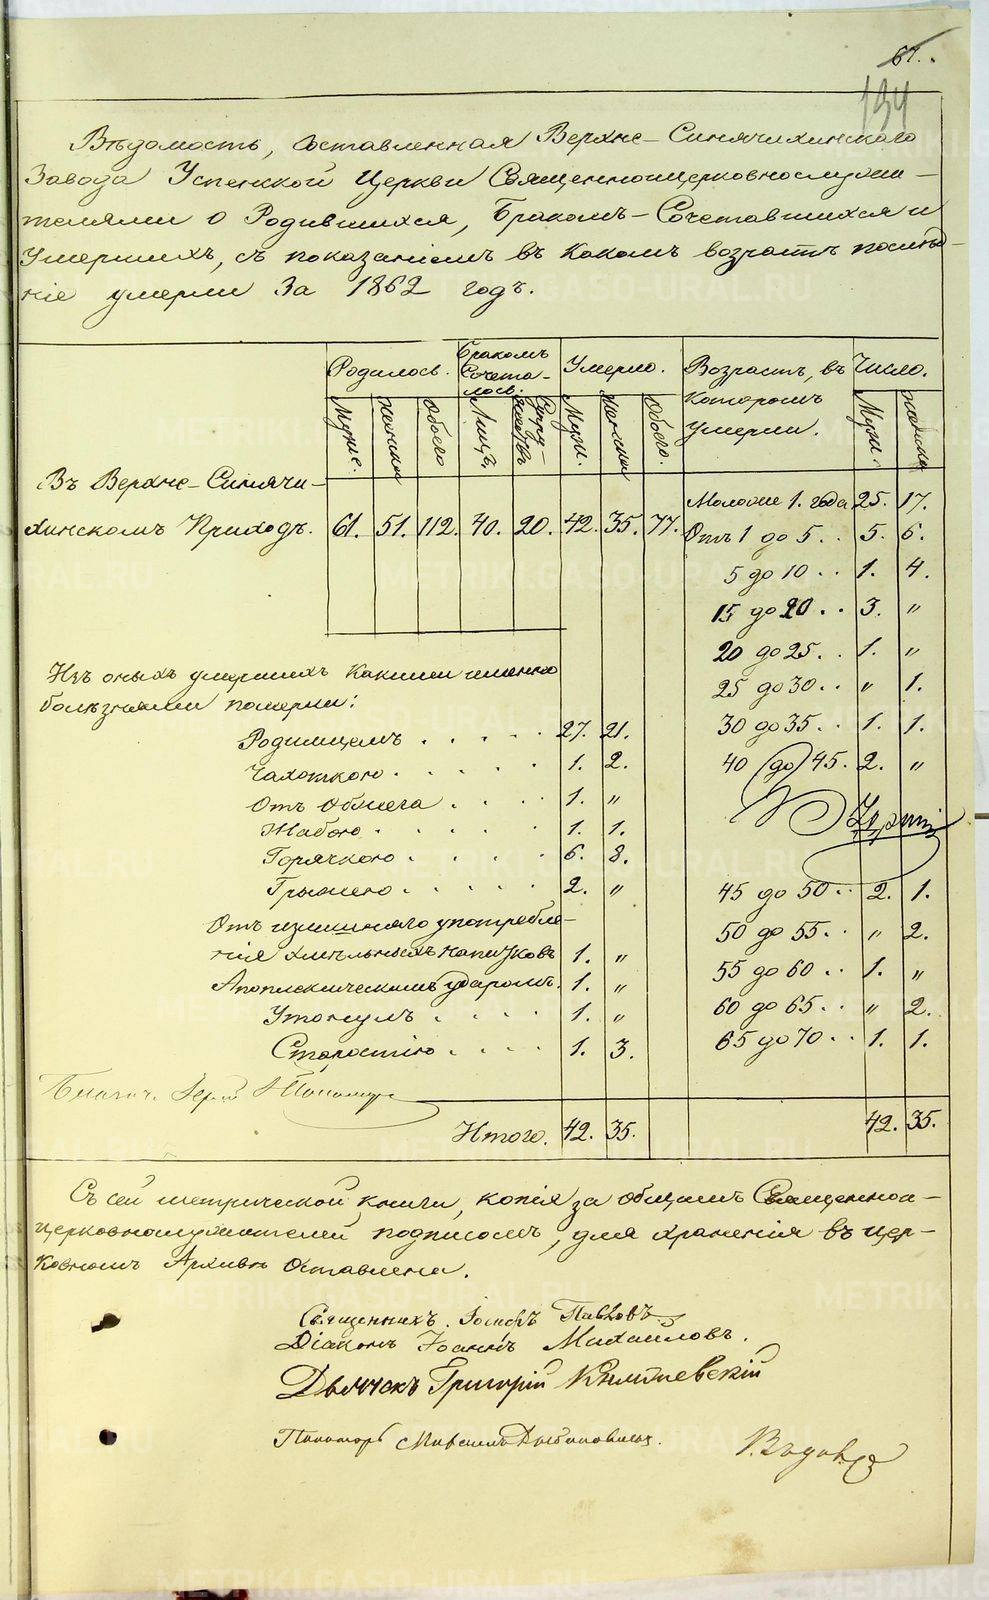 67.
134
Вѣдомость, составленная Верхне-Синячихинскаго
Завода Успенской Церкви Священноцерковнослужи-
телями о Родившихся, Бракомъ-Сочетавшихся и
Умершихъ, съ показаніемъ въ какомъ возрастѣ послѣд-
ніе умерли за 1862 годъ.
Родилось. Бракомъ Сочета-лось. Умерло. Возрастъ, въ которомъ умерли. Число.
Муже. Женска Обоего Лицъ, Супружествъ Муж. Женска Обоего. Муж. Женска
Въ Верхне-Синячи-
хинскомъ Приходѣ. 61. 51. 112. 40. 20. 42. 35. 77.
Моложе 1. года 25. 17.
Отъ 1 до 5.. 5. 6.
5 до 10.. 1. 4.
15 до 20.. 3. „
20 до 25.. 1. „
25 до 30.. „ 1.
30 до 35.. 1. 1.
40 до 45. 2. „
45 до 50.. 2. 1.
50 до 55.. „ 2.
55 до 60.. 1. „
60 до 65.. „ 2.
65 до 70.. 1. 1.
Изъ оныхъ умершихъ какими именно
болѣзнями померли:
Родимцемъ..... 27. 21.
Чахоткою..... 1. 2.
Отъ обжега.... 1. „
Жабою..... 1. 1.
Горячкою..... 6. 8.
Грыжею..... 2. „
Отъ излишняго употребле-
нія хмѣльныхъ напитковъ 1. „
Апоплексическимъ ударомъ. 1. „
Утонулъ.... 1. „
Старостію.... 1. 3.
Итого. 42. 35. 42. 35.
Съ сей метрической книги, копія за общимъ Священно-
церковнослужителей подписомъ, для храненія въ цер-
ковномъ Архивѣ оставлена.
Священникъ Іосифъ Павловъ
Діаконъ Іоаннъ Михайловъ.
Дьячекъ Григорій
Пономарь
METRIKI.GASO-URAL.RU